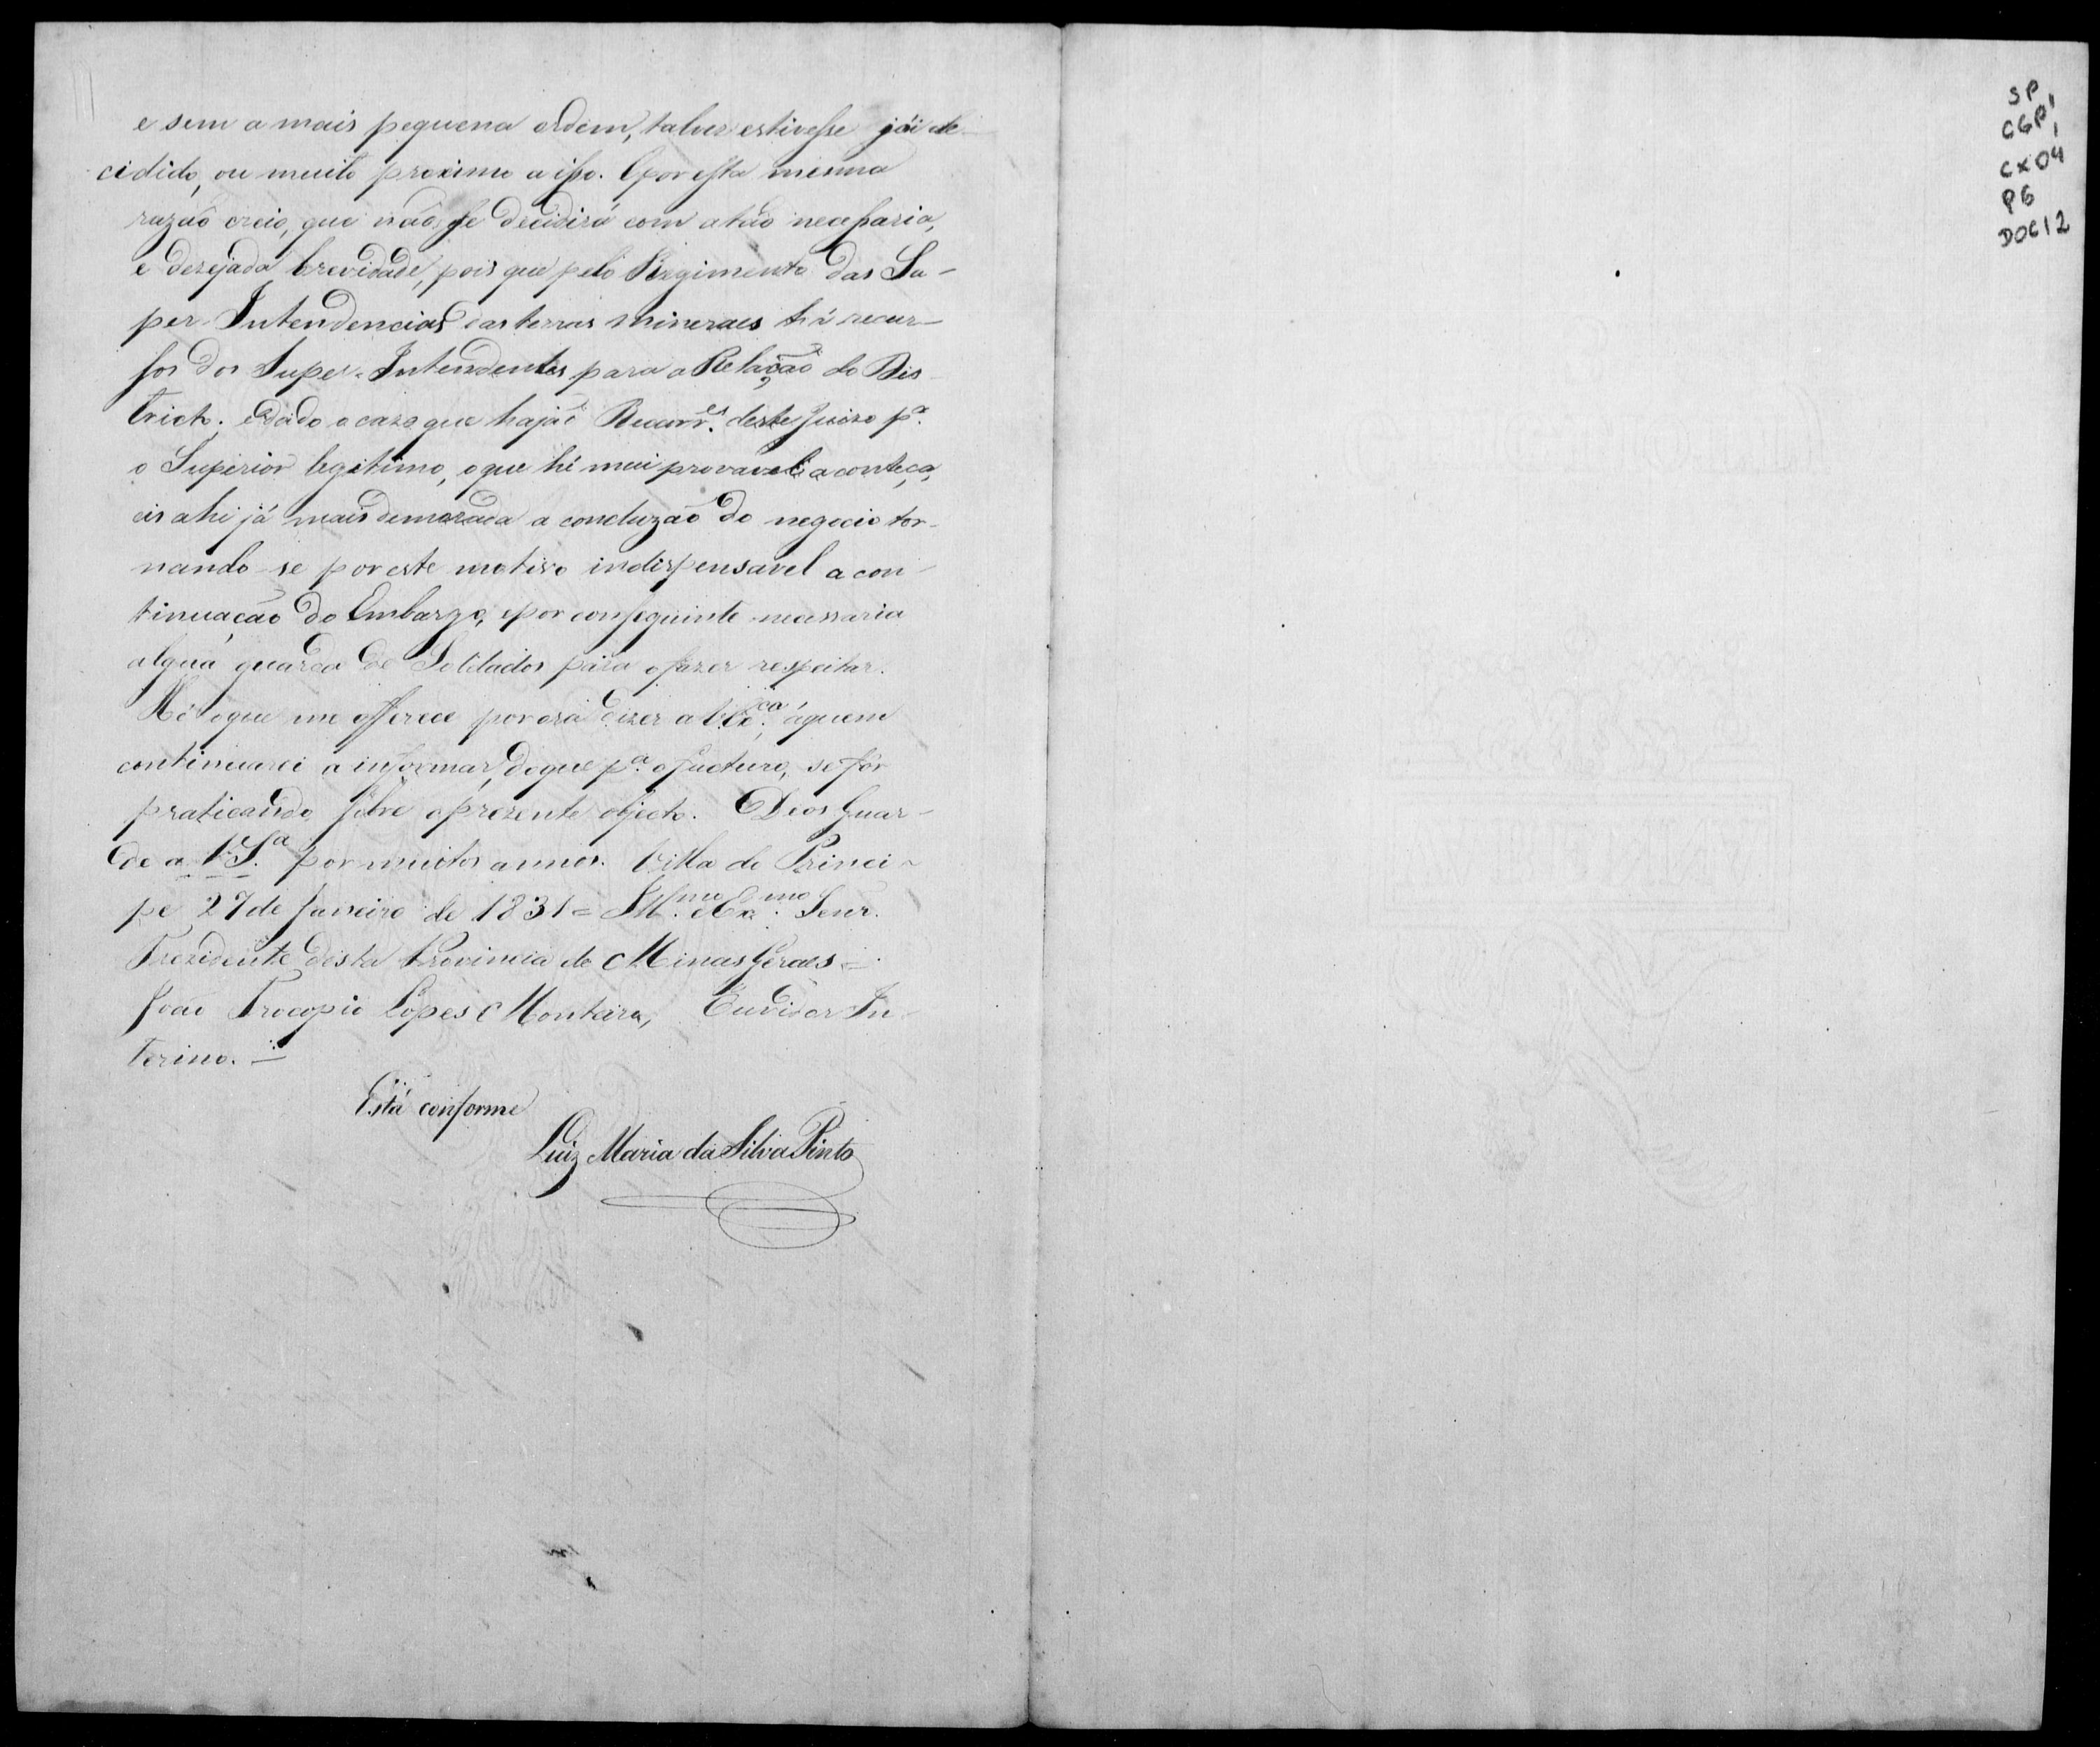 e sem a mais pequena ordem, talvez estivesse já de-
cidido, ou muito proximo a isso. E por esta mesma
razão creio, que não se decidirá com a tão necessaria,
e dezejada brevidade, pois que pelo Regimento das Su-
per-Intendencias das terras mineraes há recur-
sos dos Super-Intendentes para a Relação do Dis-
tricto; e dado o cazo que hajaõ Recorr.es deste Juizo p.a
o Superior legitimo, o que hé mui provavel aconteça,
eis ahi já mais demorada a concluzaõ do negocio tor-
nando-se por este motivo indispensavel a con-
tinuação do Embargo, e por conseguinte necessaria
algũa guarda de Soldados para o fazer respeitar.
Hé o que me offerece por ora dizer a V. Ex.cia, áquem
continuarei a informar, do que p.a o futuro, se fôr
praticando sobre o prezente objecto. Deos Guar-
de a V. S.a por muitos annos. Villa do Princi-
pe 27 de Janeiro de 1831 = Ill.mo e Ex.mo Senr.
Prezidente desta Provincia de Minas Geraes =
João Procopio Lopes Monteiro, Ouvidor In-
terino. =
Está conforme
Luiz Maria da Silva Pinto
SP
CGP1
CX04
P6
DOC12